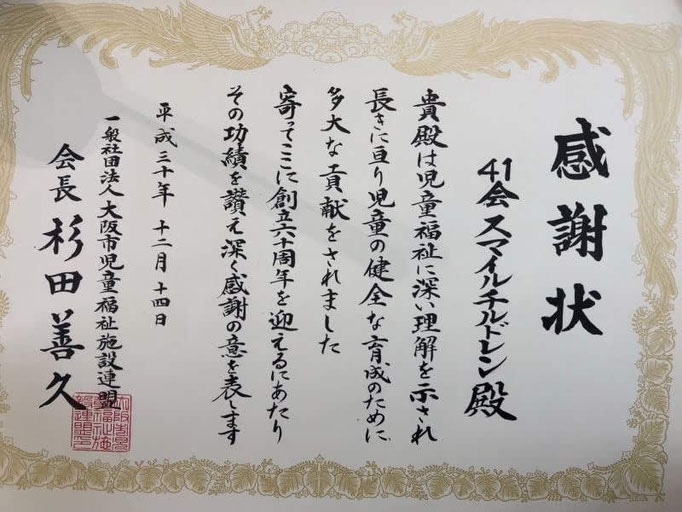 感謝状
41会スマイルチルドレン殿
貴殿は児童福祉に深い理解を示され
長きに亘り児童の健全な育成のために
多大な貢献をされました
寄ってここに創立六十周年を迎えるにあたり
その功績を讃え深く感謝の意を表します
平成三十年十二月十四日
一般社団法人大阪市児童福祉施設連盟
会長杉田善久